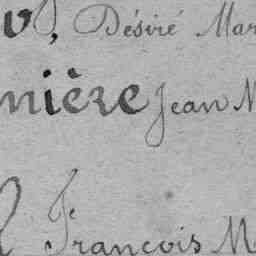 v, Désiré Mar
nière Jean M
François M